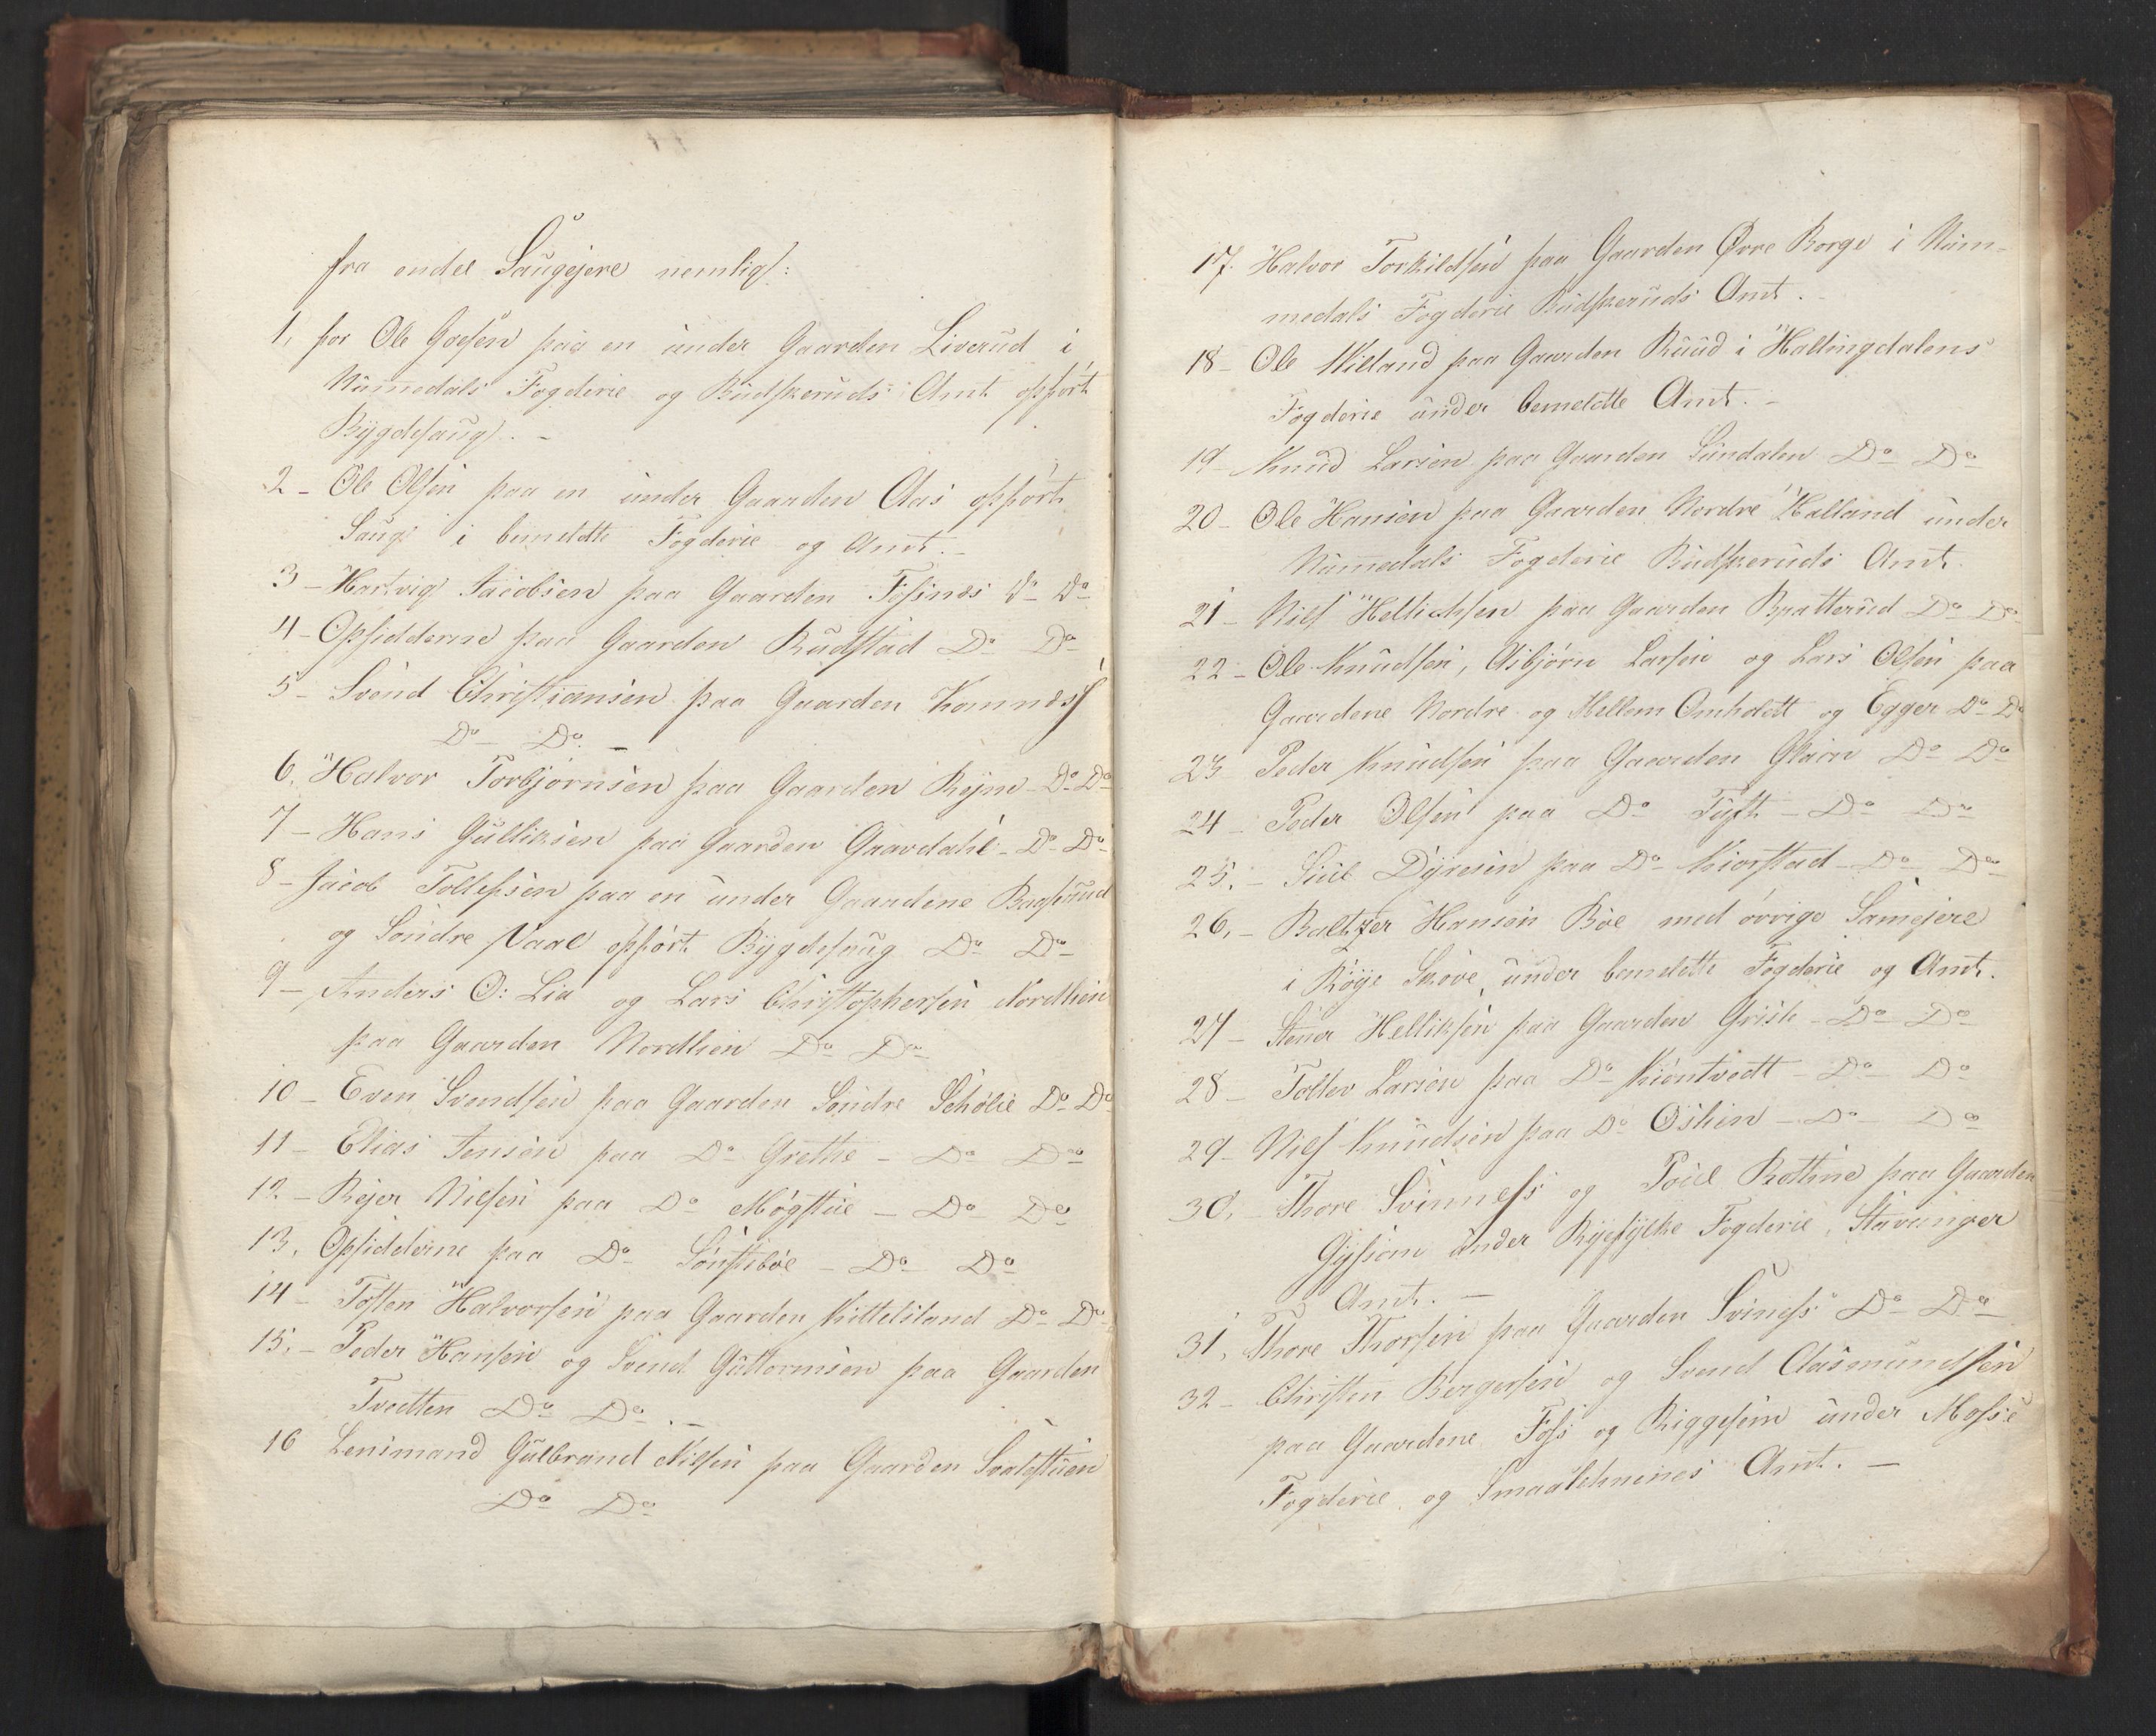 fra endel Saugejere nemlig:
1, for Ole Goesen paa en under Gaarden Liverud i
Numedals Fogderie og Budskeruds Amt opført
Bygdesaug. -
2 - Ole Olsen paa en under Gaarden Aas opført
Saug i bemeldte Fogderie og Amt. -
3 - Hartvig Jacobsen paa Gaarden Fosnæs Do Do
4 - Opsidderne paa Gaarden Rudstad Do Do
5 - Svend Christiansen paa Gaarden Komnæss
Do - Do. -
6, Halvor Torbjørnsen paa Gaarden Rejme - Do Do
7 - Hans Gulliksen paa Gaarden Gravdahl - Do Do
8 - Jacob Tollefsen paa en under Gaardene
og Søndre Vaal opført Bygdesaug Do Do
9 - Anders O: Lia og Lars Christophersen Nordlien
paa Gaarden Nordlien Do Do
10 - Even Svendsen paa Gaarden Søndre Schølie Do Do
11 - Elias Jensen paa Do Grethe - Do Do
12 - Rejer Nielsen paa Do Møgstue - Do Do
13, Opsidderne paa Do Sønstebøe - Do Do
14 - Tosten Halvorsen paa Gaarden Kittelsland Do Do
15, - Peder Hansen og Svend Guttormsen paa Gaarden
Tvedten Do Do. -
16 Lensmand Gulbrand Nilsen paa Gaarden Svalestuen
Do Do
17. Halvor Torkildsen paa Gaarden Øvre Borge i Num-
medals Fogderie Budskeruds Amt.
18 - Ole Villand paa Gaarden Ruud i Hallingdalens
Fogderie under bemeldte Amt. -
19 - Knud Larsen paa Gaarden Sundalen Do Do
20 - Ole Hansen paa Gaarden Nordre Kalland under
Numedals Fogderie Budskeruds Amt.
21 - Nils Hellichsen paa Gaarden Bratterud Do Do
22 - Ole Knudsen, Asbjørn Larsen og Lars Olsen paa
Gaardene Nordre og Mellem Omholdt og Egger Do Do
23 Peder Knudsen paa Gaarden Do Do
24 - Peder Olsen paa Do Tuft - Do Do
25, - Siul Dyresen paa Do Kiorstad - Do Do
26, - Baltzer Hansen Bøe med øvrige Samejere
i Bøye Skove, under bemeldte Fogderie og Amt.
27 - Stener Helliksen paa Gaarden Do Do
28 - Tollev Larsen paa Do Kiøntvedt - Do Do
29 - Nils Knudsen paa Do Oslien - Do Do
30, - Thore Svinness og Poul Rottine paa Gaarden
under Ryefylke Fogderie, Stavanger
Amt. -
31, Thore Thorsen paa Gaarden Sviness Do Do
32 - Christen Bergersen og Svend Aasmundsen
paa Gaardene Foss og Riggesøm under Mosse
Fogderie og Smaalehnenes Amt. -